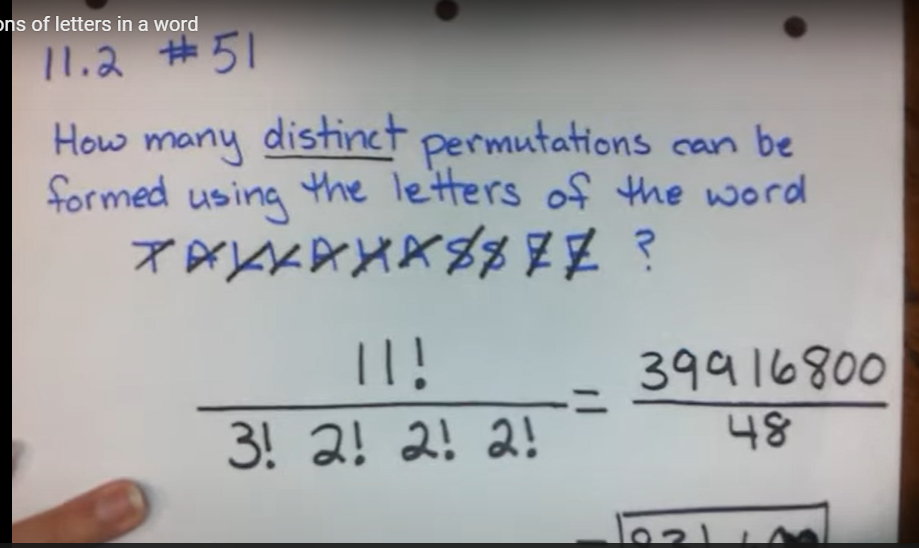 ons of letters in a word
11.2 #51
How many distinct permutations can be
formed using the letters of the word
TALLAHASSEE ?
11!
3! 2! 2! 2!
=
39916800
48